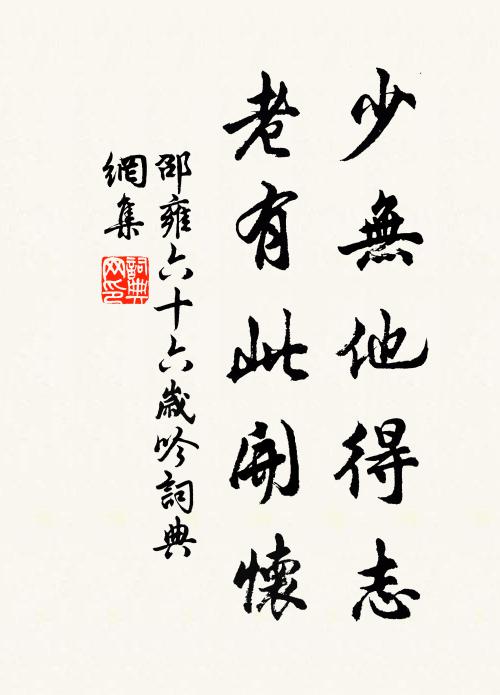 少無他得志
老有此開懷
邵雍六十六歲吟詞典
網集
詞典網印